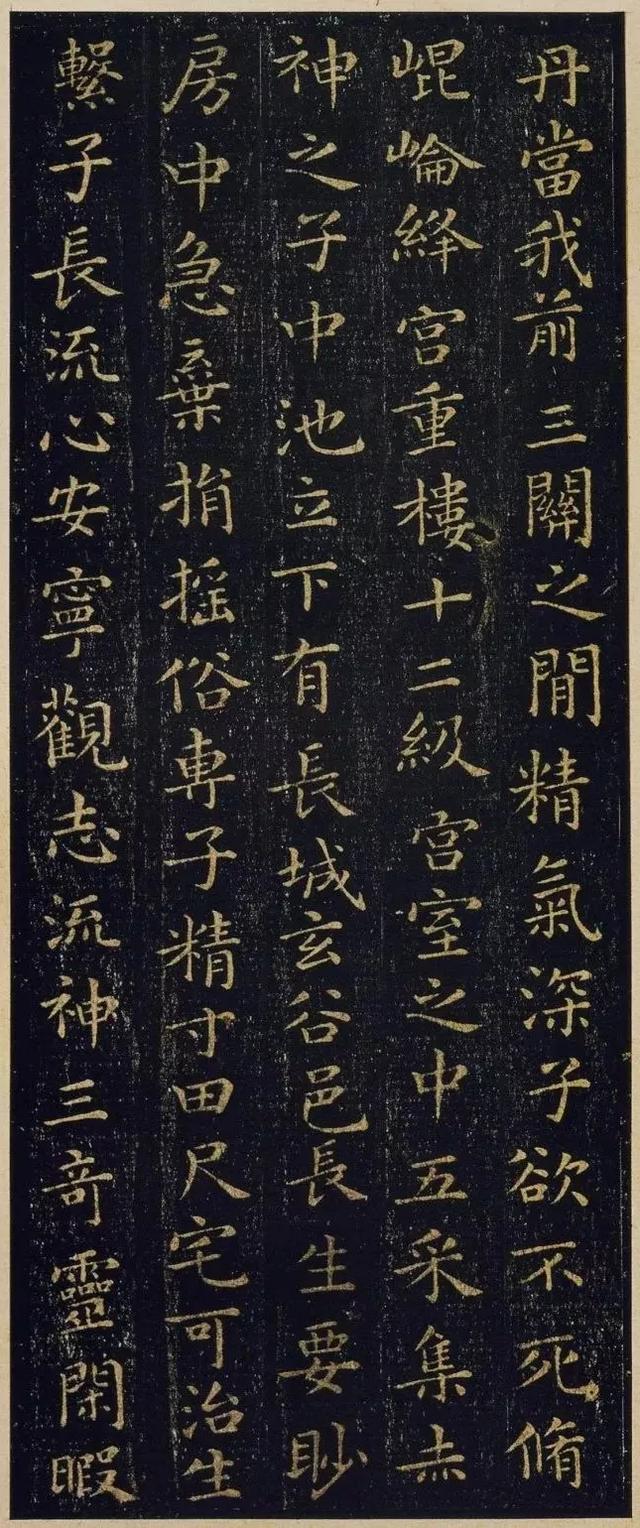 丹當我前三關之間精氣深子欲不死脩
崐崘絳宫重樓十二級宫室之中五采集赤
神之子中池立下有長城玄谷邑長生要眇
房中急棄捐揺俗専子精寸田尺宅可治生
繫子長流心安寧觀志流神三奇靈閑暇